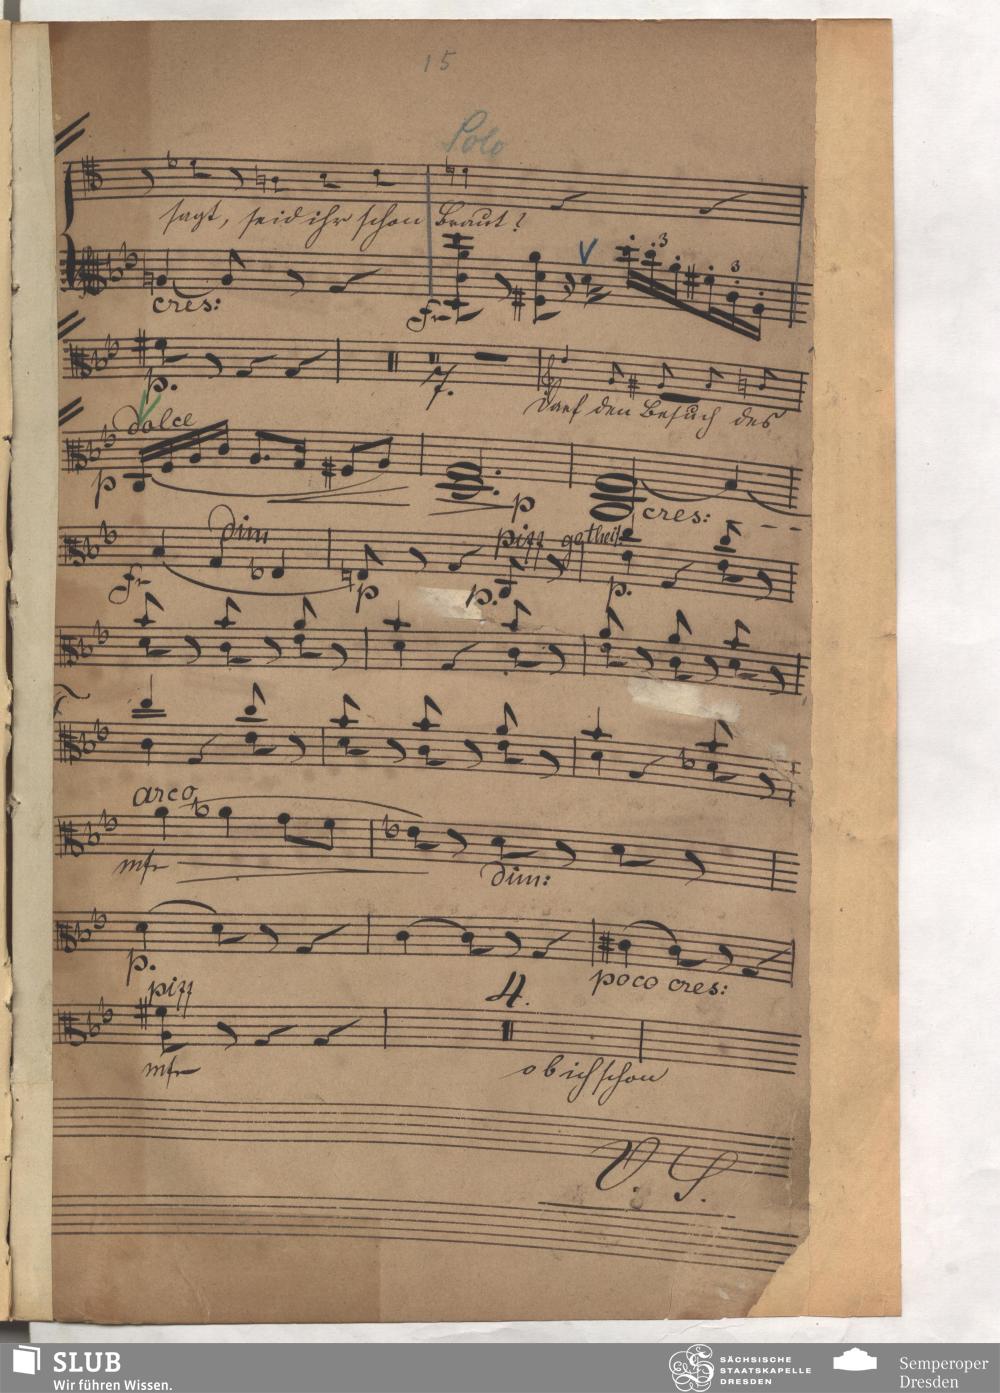 15
Solo
sagt, seid ihr schon Braut?
3 3
cres: fr
p. 7.
Darf den Besuch des
dolce
p p cres:
dim pizz getheilt
fr p p. p.
arco
mfr dim:
p. poco cres:
pizz 4.
mfr ob ich schon
V. S.
SLUB
Wir führen Wissen.
SÄCHSISCHE
STAATSKAPELLE
DRESDEN
Semperoper
Dresden